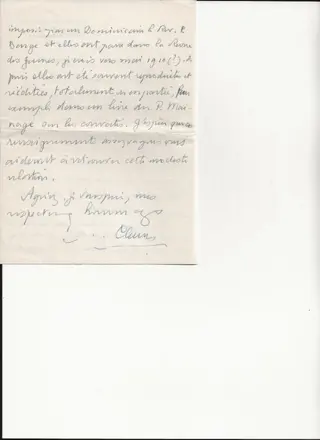 par un Dominicain le Rev. P.
et elles ont paru dans la Revue
des Jeunes, je crois vers mai
puis elles ont été souvent reproduites et
rééditées, totalement, en partie, par
exemple dans un livre du P.
sur les convertis. J'espère que ces
renseignements vous
aideront à retrouver cette modeste
relation.
Agréez, je vous prie, mes
respectueux hommages